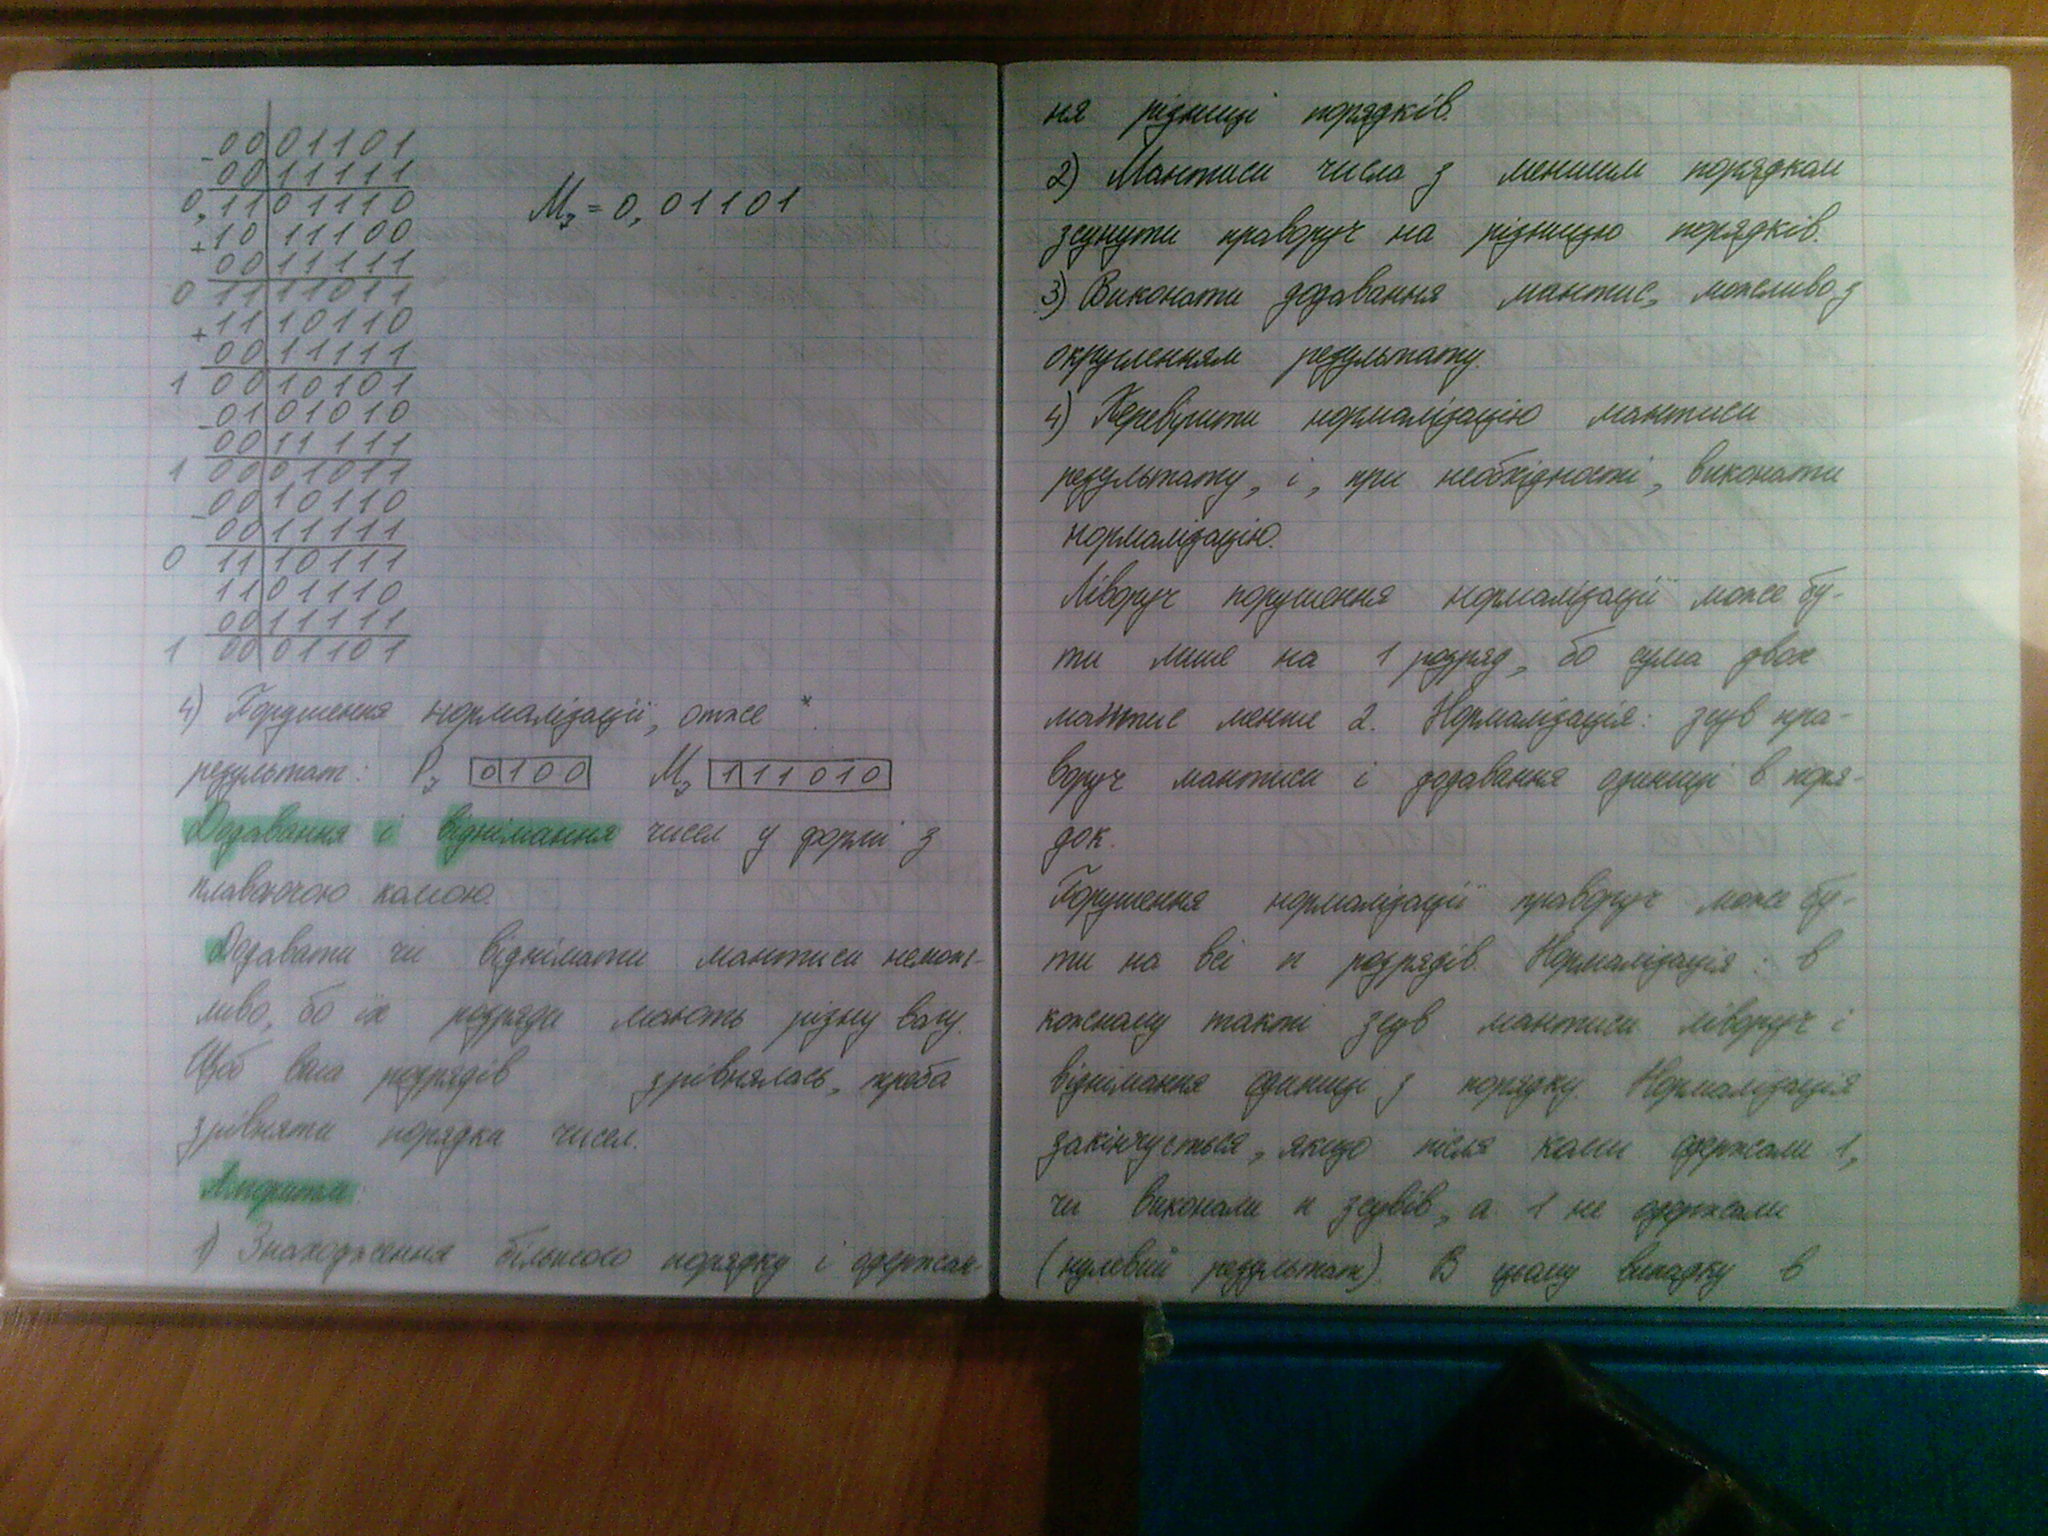 - 00 01101
00 11111
0, 11 01110
+ 10 11100
00 11111
0 11 11011
+ 11 10110
00 11111
1 00 10101
- 01 01010
00 11111
1 00 01011
- 00 10110
00 11111
0 11 10111
11 01110
00 11111
1 00 01101
Mз = 0, 01101
4) Порушення нормалізації, отже *.
результат: Pз 0100 Mз 1111010
Додавання і віднімання чисел у формі з
плаваючою комою.
Додавати чи віднімати мантиси немож-
ливо, бо їх розряди мають різну вагу.
Щоб вага розрядів зрівнялась, треба
зрівняти порядки чисел.
Алгоритм:
1) Знаходження більшого порядку і одержан-
ня різниці порядків.
2) Мантиси числа з меншим порядком
зсунути праворуч на різницю порядків.
3) Виконати додавання мантис, можливо з
округленням результату.
4) Перевірити нормалізацію мантиси
результату, і, при необхідності, виконати
нормалізацію.
Ліворуч порушення нормалізації може бу-
ти лише на 1 розряд, бо сума двох
мантис менше 2. Нормалізація: зсув пра-
воруч мантиси і додавання одиниці в поря-
док.
Порушення нормалізації праворуч може бу-
ти на всі n розрядів. Нормалізація: в
кожному такті зсув мантиси ліворуч і
віднімання одиниці з порядку. Нормалізація
закінчується, якщо після коми одержали 1,
чи виконали n зсувів, а 1 не одержали
(нулевий результат). В цьому випадку в